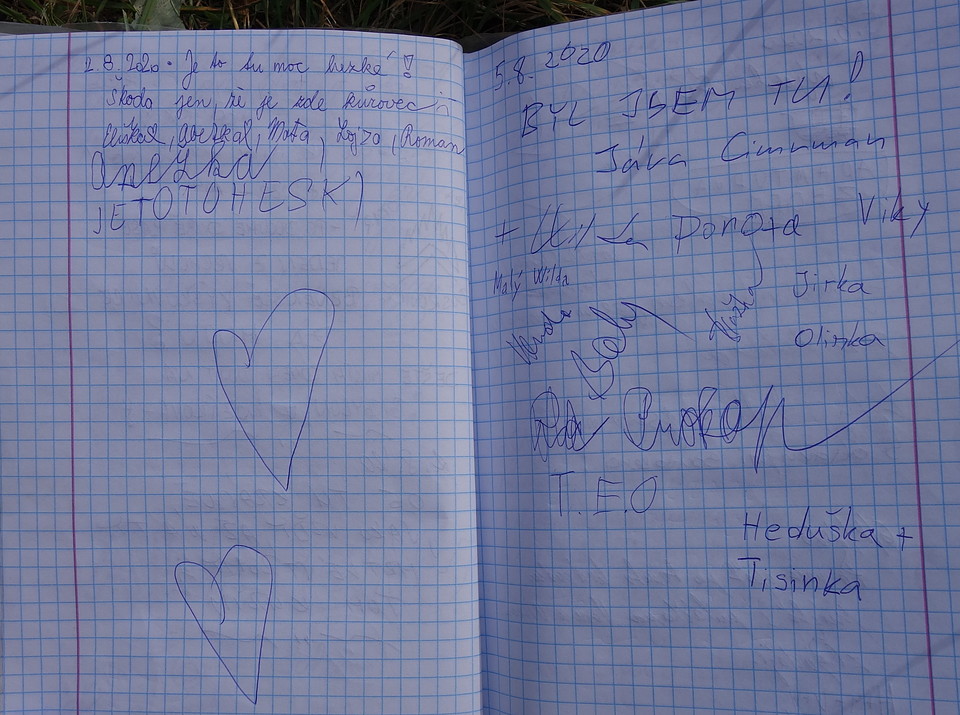 2.8.2020. Je to tu moc hezké!
Škoda jen, že je zde kůrovec
Eliška, Máťa, Lojza, Roman
Anežka
JE TO TO HESKÝ
5.8. 2020
BYL JSEM TU!
Jára Cimrman
+ Dorota Viky
Malý Wilda
Jirka
Olinka
Prokop
T.E.O
Heduška +
Tisinka